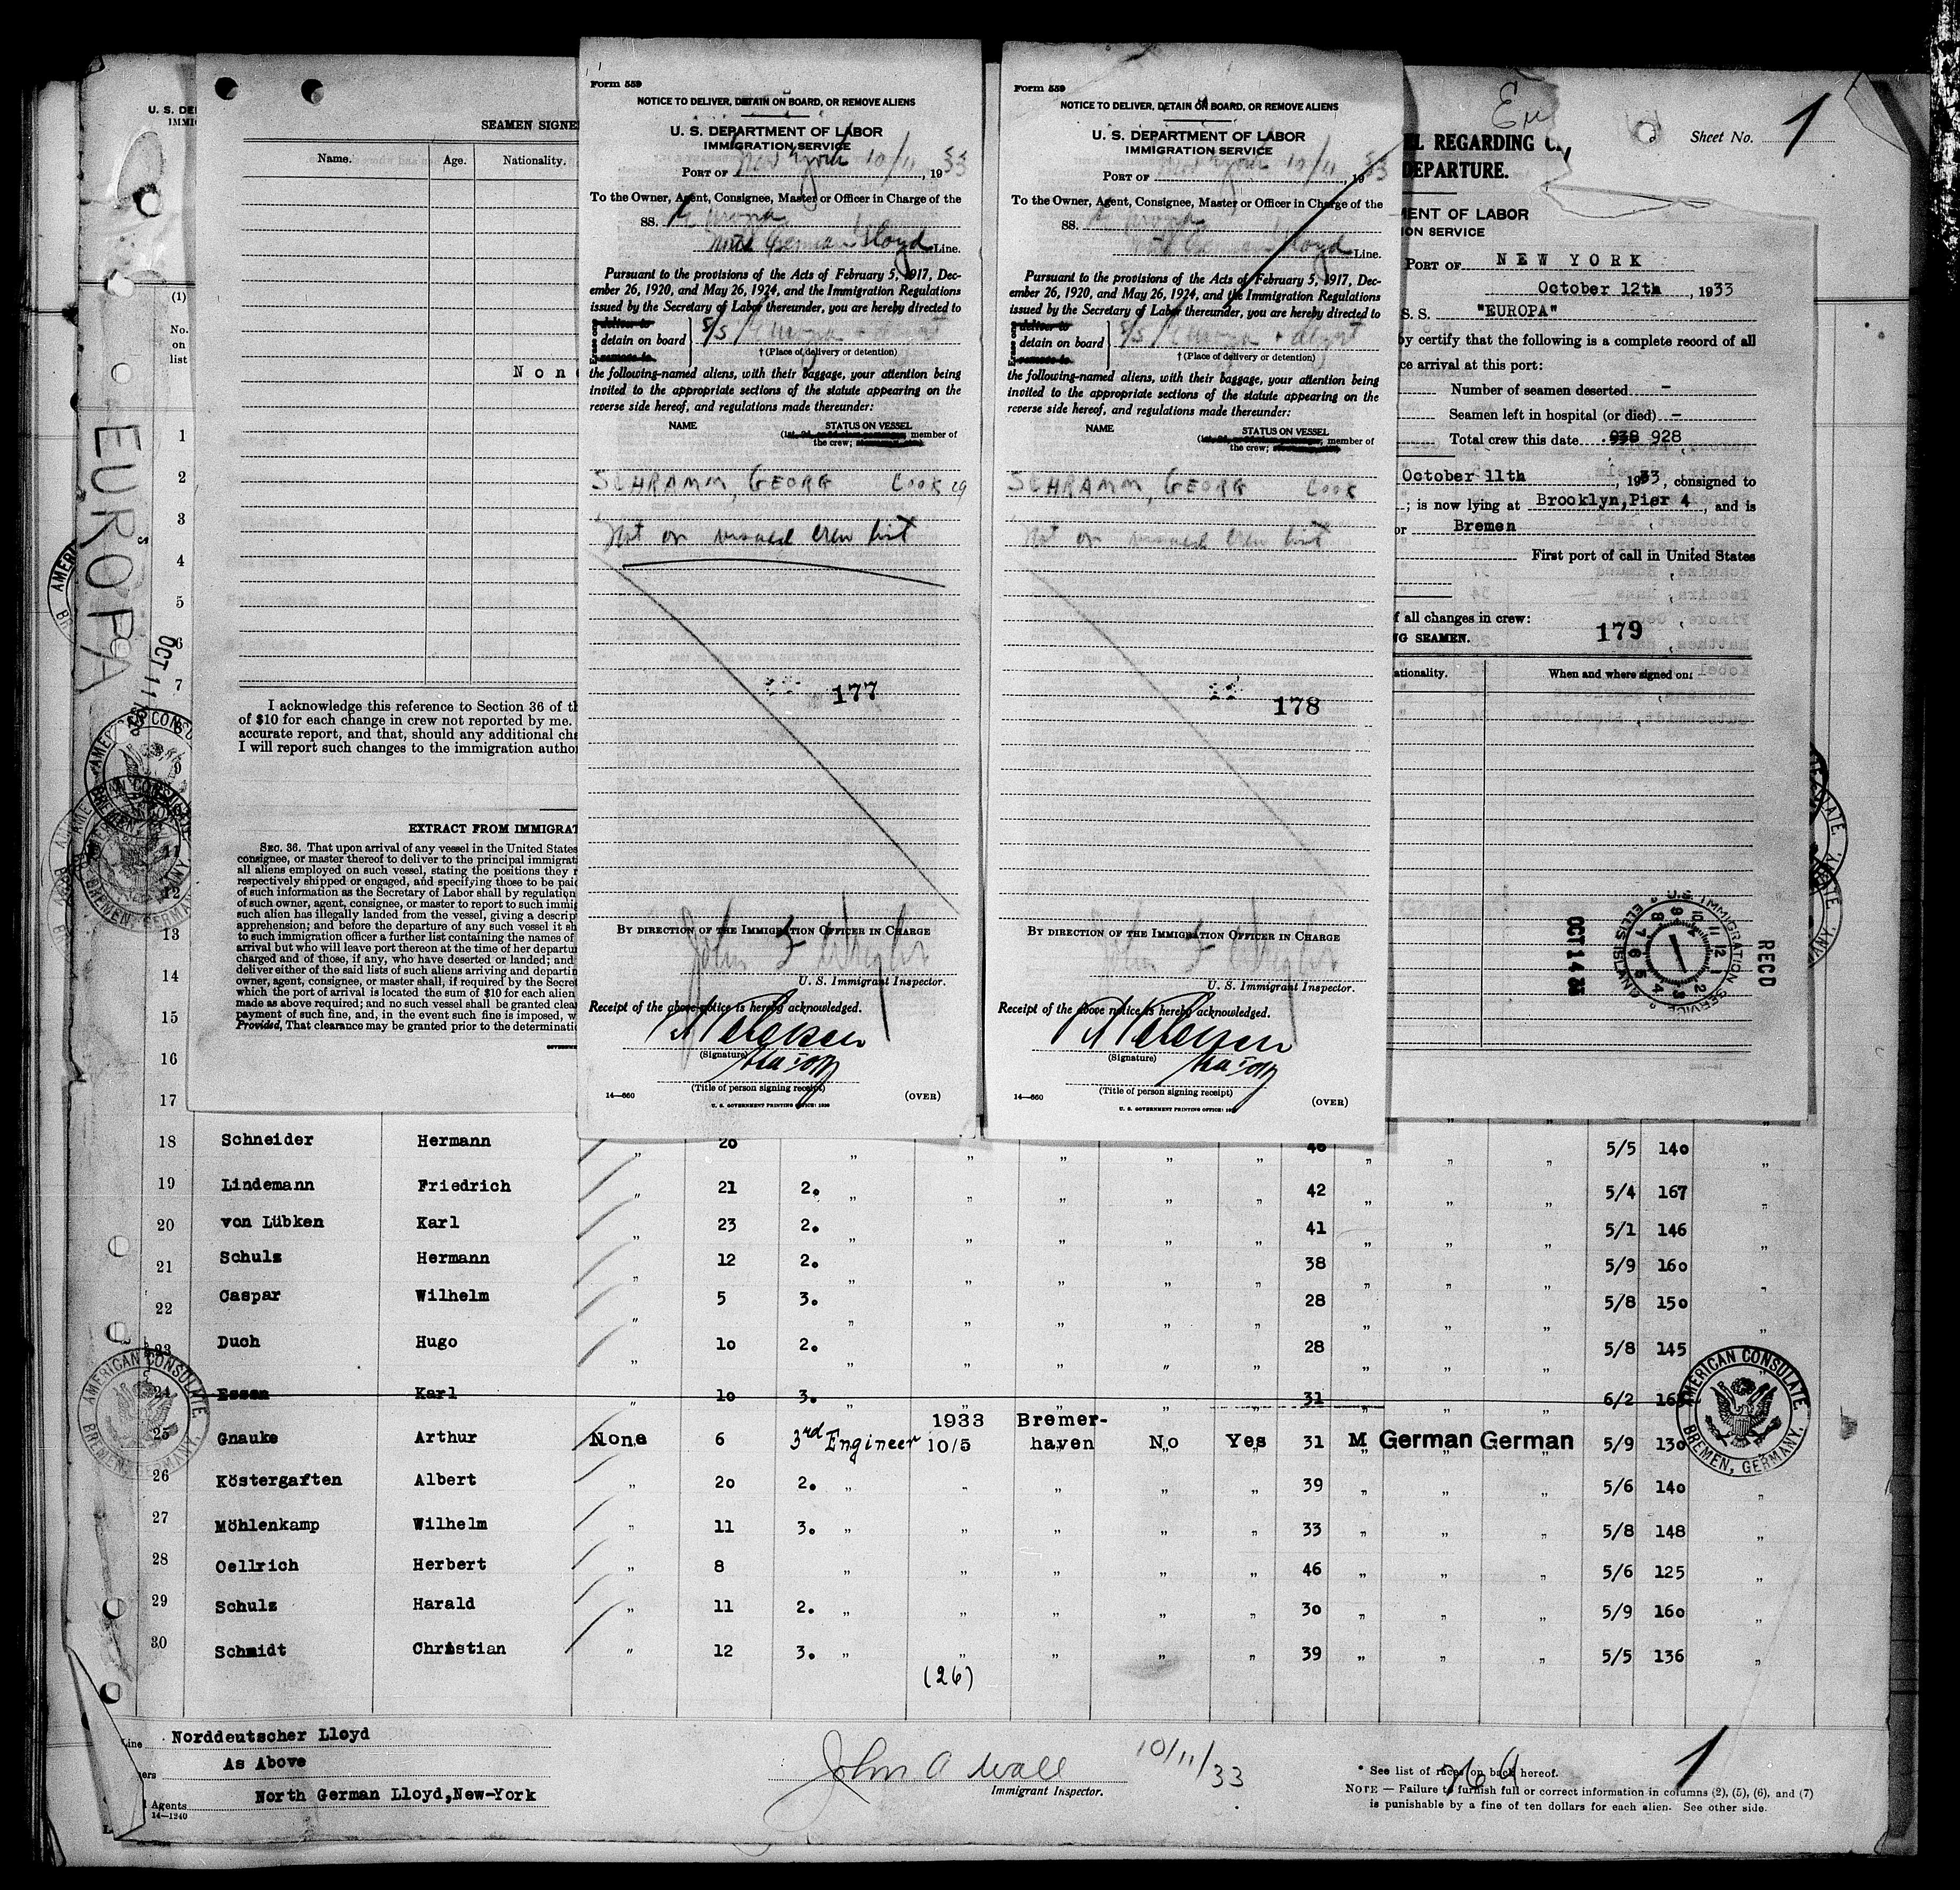 U. S. DE
IMMI
EUROPA
OCT 11 1933
(1)
No.
on
list
1
2
3
4
5
6
7
9
11
12
13
14
15
16
17
SEAMEN SIGNE
Name.
Age.
Nationality.
Non
I acknowledge this reference to Section 36 of th
of $10 for each change in crew not reported by me.
accurate report, and that, should any additional cha
I will report such changes to the immigration author
EXTRACT FROM IMMIGRAT
SEC. 36. That upon arrival of any vessel in the United States
consignee, or master thereof to deliver to the principal immigrati
all aliens employed on such vessel, stating the positions they r
respectively shipped or engaged, and specifying those to be paid
of such information as the Secretary of Labor shall by regulation
of such owner, agent, consignee, or master to report to such immig
such alien has illegally landed from the vessel, giving a descrip
apprehension; and before the departure of any such vessel it sh
to such immigration officer a further list containing the names of
arrival but who will leave port thereon at the time of her departur
charged and of those, if any, who have deserted or landed; and
deliver either of the said lists of such aliens arriving and departin
owner, agent, consignee, or master shall, if required by the Secret
which the port of arrival is located the sum of $10 for each alien
made as above required; and no such vessel shall be granted clea
payment of such fine, and, in the event such fine is imposed, w
Provided, That clearance may be granted prior to the determinati
Form 559
NOTICE TO DELIVER, DETAIN ON BOARD, OR REMOVE ALIENS
U. S. DEPARTMENT OF LABOR
IMMIGRATION SERVICE
PORT OF New York 10/11, 1933
To the Owner, Agent, Consignee, Master or Officer in Charge of the
SS. Europa
North German Lloyd Line.
Pursuant to the provisions of the Acts of February 5, 1917, Dec-
ember 26, 1920, and May 26, 1924, and the Immigration Regulations
issued by the Secretary of Labor thereunder, you are hereby directed to
deliver to
detain on board
remove to
S/S Europa + deport
† (Place of delivery or detention)
the following-named aliens, with their baggage, your attention being
invited to the appropriate sections of the statute appearing on the
reverse side hereof, and regulations made thereunder:
NAME STATUS ON VESSEL
(1st, 2d, or 3d class passenger, member of
the crew;
SCHRAMM, GEORG COOK 29
Not on visaed crew list
177
BY DIRECTION OF THE IMMIGRATION OFFICER IN CHARGE
John F Wright
U. S. Immigrant Inspector.
Receipt of the above notice is hereby acknowledged.
(Signature)
(Title of person signing receipt)
14—660 (OVER)
U. S. GOVERNMENT PRINTING OFFICE: 1930
Form 559
NOTICE TO DELIVER, DETAIN ON BOARD, OR REMOVE ALIENS
U. S. DEPARTMENT OF LABOR
IMMIGRATION SERVICE
PORT OF New York 10/11, 1933
To the Owner, Agent, Consignee, Master or Officer in Charge of the
SS. Europa
North German Lloyd Line.
Pursuant to the provisions of the Acts of February 5, 1917, Dec-
ember 26, 1920, and May 26, 1924, and the Immigration Regulations
issued by the Secretary of Labor thereunder, you are hereby directed to
deliver to
detain on board
remove to
S/S Europa + deport
† (Place of delivery or detention)
the following-named aliens, with their baggage, your attention being
invited to the appropriate sections of the statute appearing on the
reverse side hereof, and regulations made thereunder:
NAME STATUS ON VESSEL
(1st, 2d, or 3d class passenger, member of
the crew;
SCHRAMM, GEORG COOK
Not on visaed crew list
178
BY DIRECTION OF THE IMMIGRATION OFFICER IN CHARGE
John F Wright
U. S. Immigrant Inspector.
Receipt of the above notice is hereby acknowledged.
(Signature)
(Title of person signing receipt)
14—660 (OVER)
U. S. GOVERNMENT PRINTING OFFICE: 19
Eu
Sheet No. 1
EL REGARDING C
DEPARTURE.
MENT OF LABOR
ION SERVICE
PORT OF NEW YORK
October 12th, 1933
S. S. "EUROPA"
by certify that the following is a complete record of all
ce arrival at this port:
Number of seamen deserted -
Seamen left in hospital (or died) -
Total crew this date 938 928
October 11th, 1933, consigned to
; is now lying at Brooklyn,Pier 4, and is
or Bremen
First port of call in United States
f all changes in crew:
179
NG SEAMEN.
ationality. When and where signed on:
U.S. IMMIGRATION SERVICE ELLIS ISLAND
RECD
OCT 14 33
18 Schneider Hermann " 20 " " " " " 46 " " " 5/5 140 "
19 Lindemann Friedrich " 21 2. " " " " " 42 " " " 5/4 167 "
20 von Lübken Karl " 23 2. " " " " " 41 " " " 5/1 146 "
21 Schulz Hermann " 12 2. " " " " " 38 " " " 5/9 160 "
22 Caspar Wilhelm " 5 3. " " " " " 28 " " " 5/8 150 "
23 Duch Hugo " 10 2. " " " " " 28 " " " 5/8 145
24 Essen Karl 10 3. " " " " " 31 " " " 6/2 165
25 Gnauke Arthur None 6 3rd Engineer 1933 10/5 Bremer-haven No Yes 31 M German German 5/9 130
26 Köstergaften Albert " 20 2. " " " " " 39 " " " 5/6 140 "
27 Möhlenkamp Wilhelm " 11 3. " " " " " 33 " " " 5/8 148 "
28 Oellrich Herbert " 8 " " " " " 46 " " " 5/6 125 "
29 Schulz Harald " 11 2. " " " " " 30 " " " 5/9 160 "
30 Schmidt Christian " 12 3. " " " " " 39 " " " 5/5 136 "
(26)
AMERICAN CONSULATE
BREMEN, GERMANY.
AMERICAN CONSULATE
BREMEN, GERMANY.
Line Norddeutscher Lloyd
ners As Above
Agents North German Lloyd,New-York
14—1240
John A Wall 10/11/33
Immigrant Inspector.
* See list of races on back hereof.
NOTE — Failure to furnish full or correct information in columns (2), (5), (6), and (7)
is punishable by a fine of ten dollars for each alien. See other side.
1